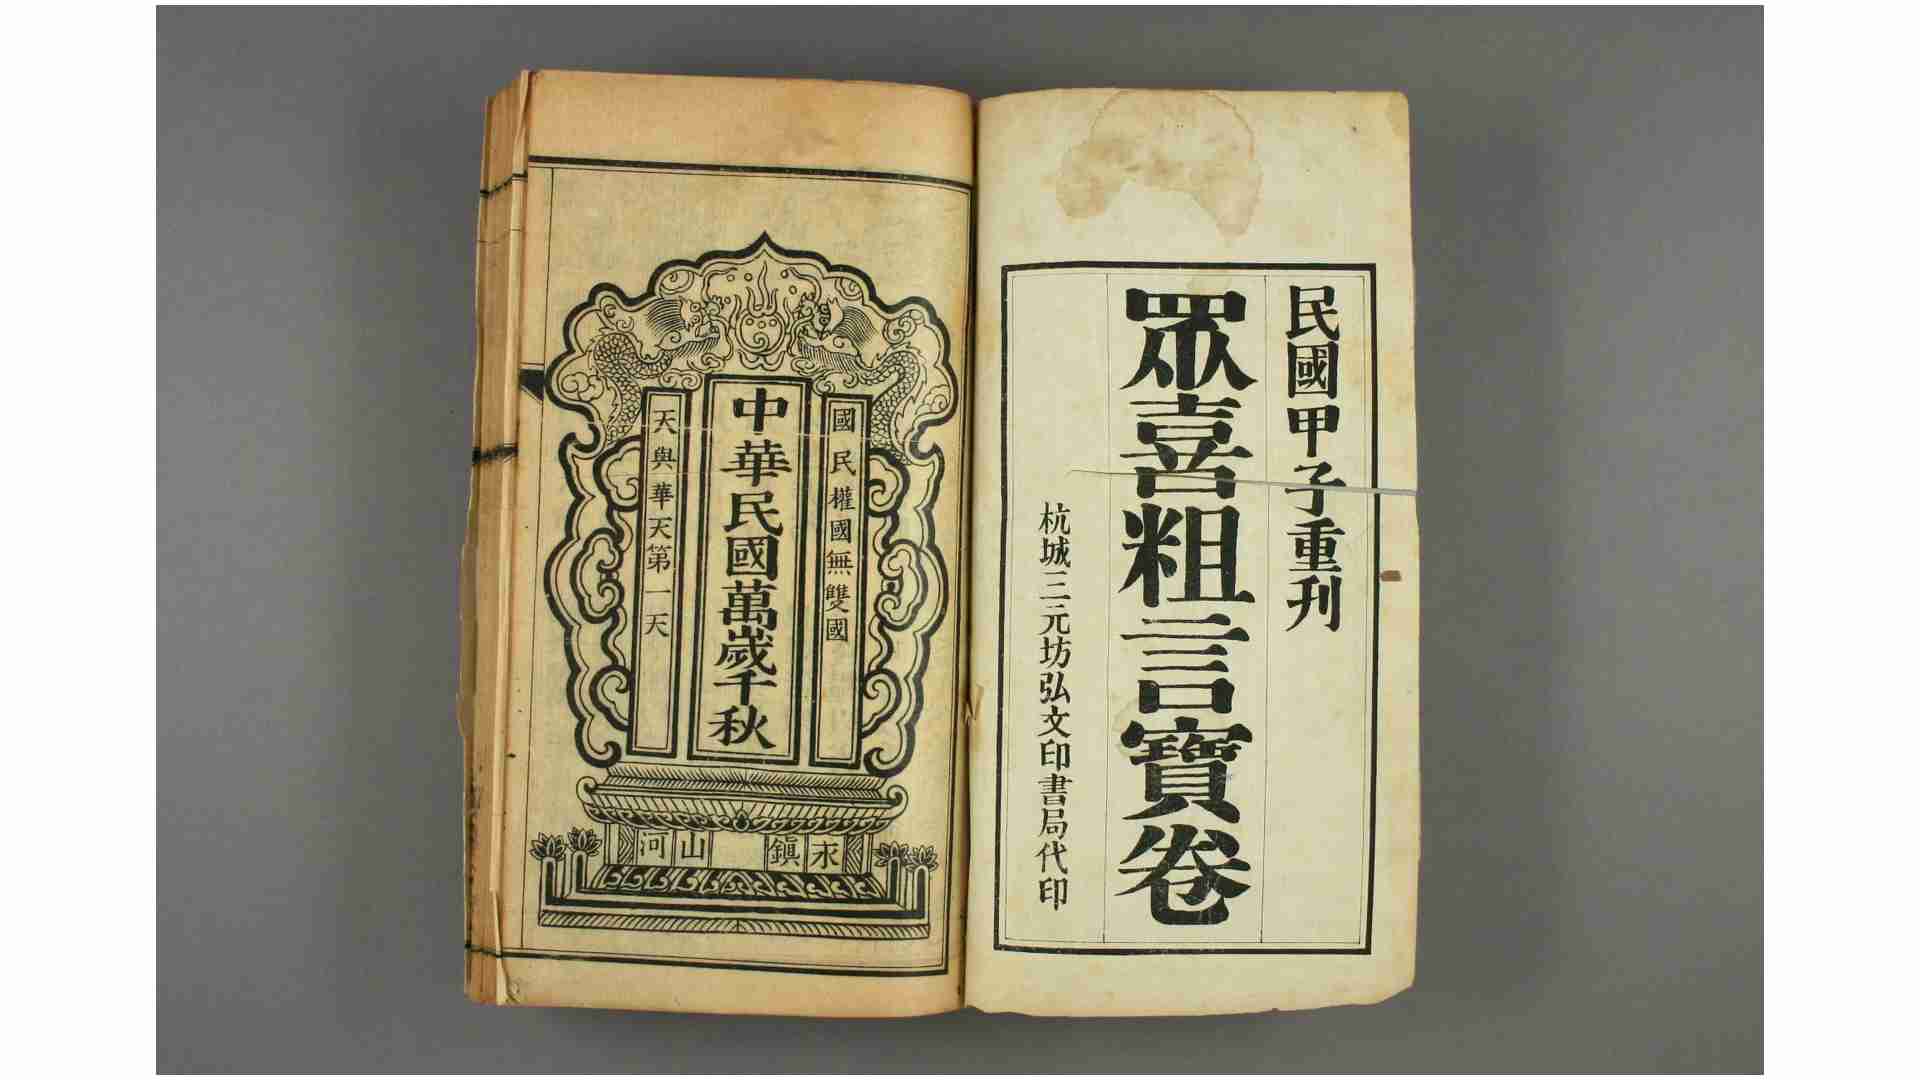 民國甲子重刊
眾喜粗言寶卷
杭城三元坊弘文印書局代印
國民權國無雙國
中華民國萬歲千秋
天與華天第一天
永鎮山河